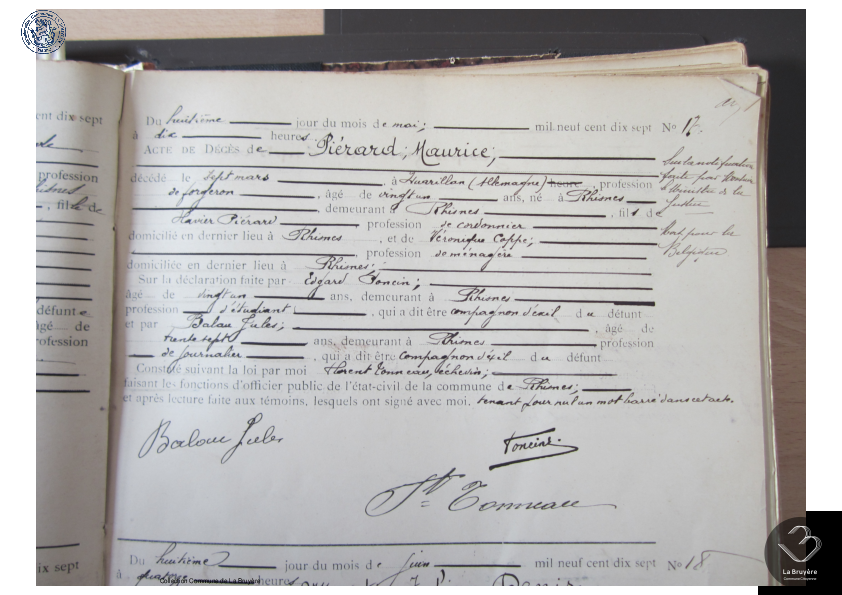 ent dix sept
profession
, fils de
défunte
âgé de
profession
ix sept
Du huitième jour du mois de mai; mil neuf cent dix sept No 17.
à dix heures
ACTE DE DÉCÈS de Piérard, Maurice;
décédé le sept mars, à (Allemagne) heure, profession
de forgeron, âgé de vingt un ans, né à Rhisnes
, demeurant à Rhisnes, fils de
Xavier Piérard profession de cordonnier
domicilié en dernier lieu à Rhisnes, et de Véronique Coppe;
, profession de ménagère
domiciliée en dernier lieu à Rhisnes;
Sur la déclaration faite par Edgard Foncin;
âgé de vingt un ans, demeurant à Rhisnes
profession d'étudiant, qui a dit être compagnon d'exil du défunt
et par Balau Jules; , âgé de
trente sept ans, demeurant à Rhisnes profession
de journalier, qui a dit être compagnon d'exil du défunt
Constaté suivant la loi par moi Florent Tonneau, échevin;
faisant les fonctions d'officier public de l'état-civil de la commune de Rhisnes;
et après lecture faite aux témoins, lesquels ont signé avec moi, tenant pour nul un mot barré dans cet acte.
Mort pour la
Belgique
Balau Jules
Foncin E.
Ft Tonneau
Du huitième jour du mois de juin mil neuf cent dix sept No 18
à quatre heures
Collection Commune de La Bruyère
La Bruyère
Commune Citoyenne